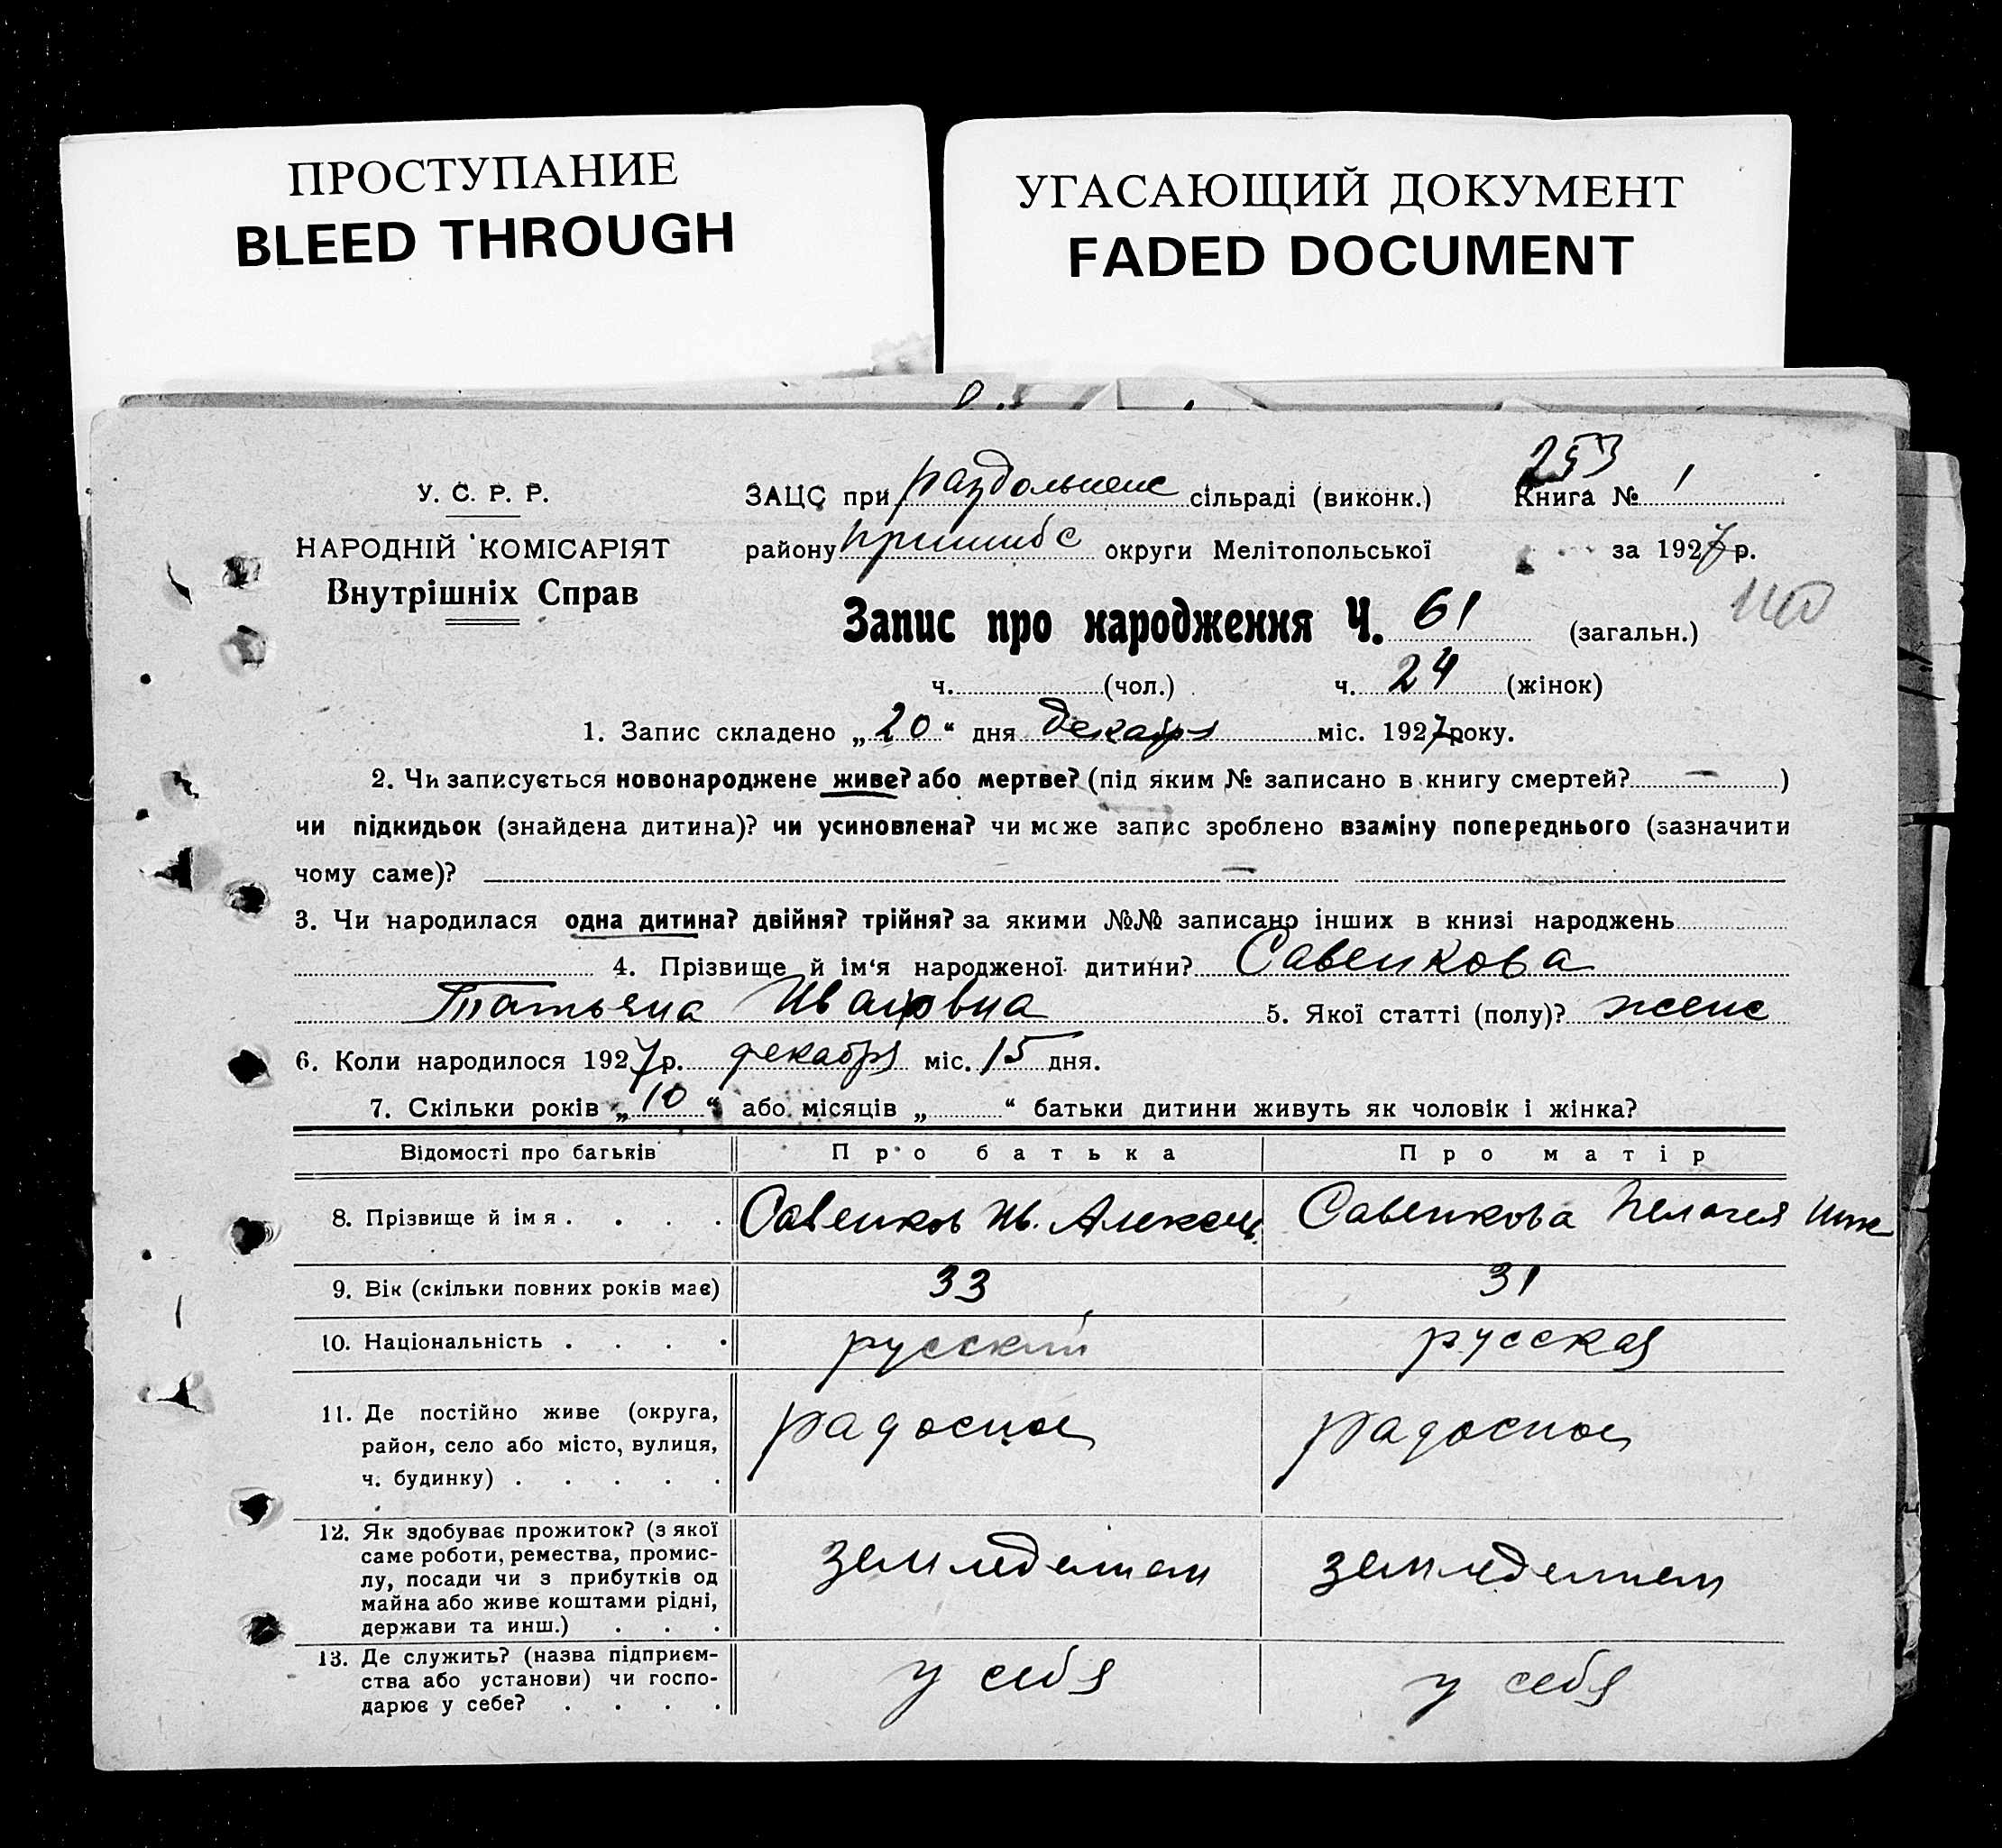 ПРОСТУПАНИЕ
BLEED THROUGH
УГАСАЮЩИЙ ДОКУМЕНТ
FADED DOCUMENT
253
У. С. Р. Р.
НАРОДНІЙ КОМІСАРІЯТ
Внутрішніх Справ
ЗАЦС при раздольненс сільраді (виконк.) Книга № 1
району пришибс округи Мелітопольської за 1927 р.
Запис про народження Ч. 61 (загальн.)
ч. (чол.) ч. 24 (жінок)
1. Запис складено „20“ дня декабря міс. 1927 року.
2. Чи записується новонароджене живе? або мертве? (під яким № записано в книгу смертей? — )
чи підкидьок (знайдена дитина)? чи усиновлена? чи може запис зроблено взаміну попереднього (зазначити
чому саме)? —
3. Чи народилася одна дитина? двійня? трійня? за якими №№ записано інших в книзі народжень
4. Прізвище й ім‘я народженої дитини? Савенкова
Татьяна Ивановна 5. Якої статті (полу)? женс
6. Коли народилося 1927 р. декабря міс. 15 дня.
7. Скільки років „10“ або місяців „ “ батьки дитини живуть як чоловік і жінка?
Відомості про батьків Про батька Про матір
8. Прізвище й імя . . . . Савенков Ив. Алексеи Савенкова Пелагея
9. Вік (скільки повних років має) 33 31
10. Національність . . . . русский русская
11. Де постійно живе (округа,
район, село або місто, вулиця,
ч. будинку) . . . . .
радосное радосное
12. Як здобуває прожиток? (з якої
саме роботи, ремества, промис-
лу, посади чи з прибутків од
майна або живе коштами рідні,
держави та инш.) . . .
земледелием земледелием
13. Де служить? (назва підприєм-
ства або установи) чи госпо-
дарює у себе? . . . .
у себя у себя